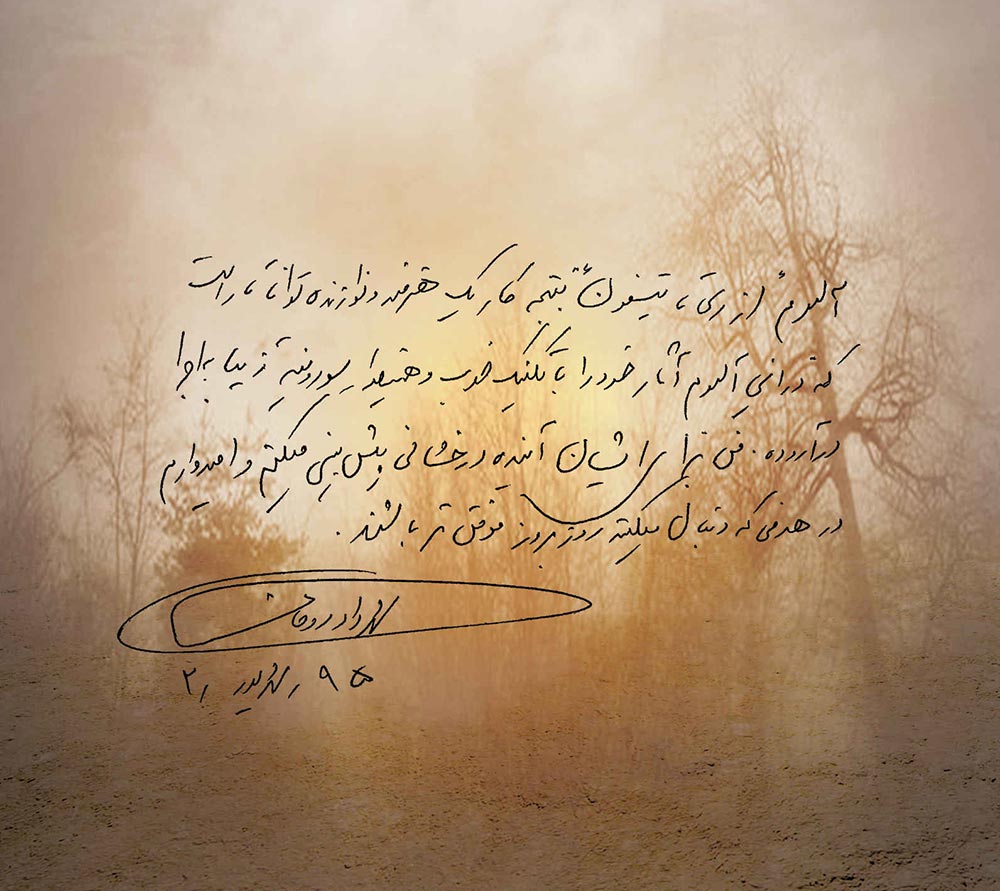 آلبوم "از رتی تا تیسفون" نتیجه کار یک هنرمند و نوازنده توانا تارا است
که در این آلبوم آثار خود را با تکنیک خوب و زیبا به اجرا
درآورده. من برای ایشان آینده درخشانی پیش بینی میکنم و امیدوارم
در هدفی که دنبال میکنند روز بروز موفق تر باشند.
شهرداد روحانی
۲ شهریور ۹۵